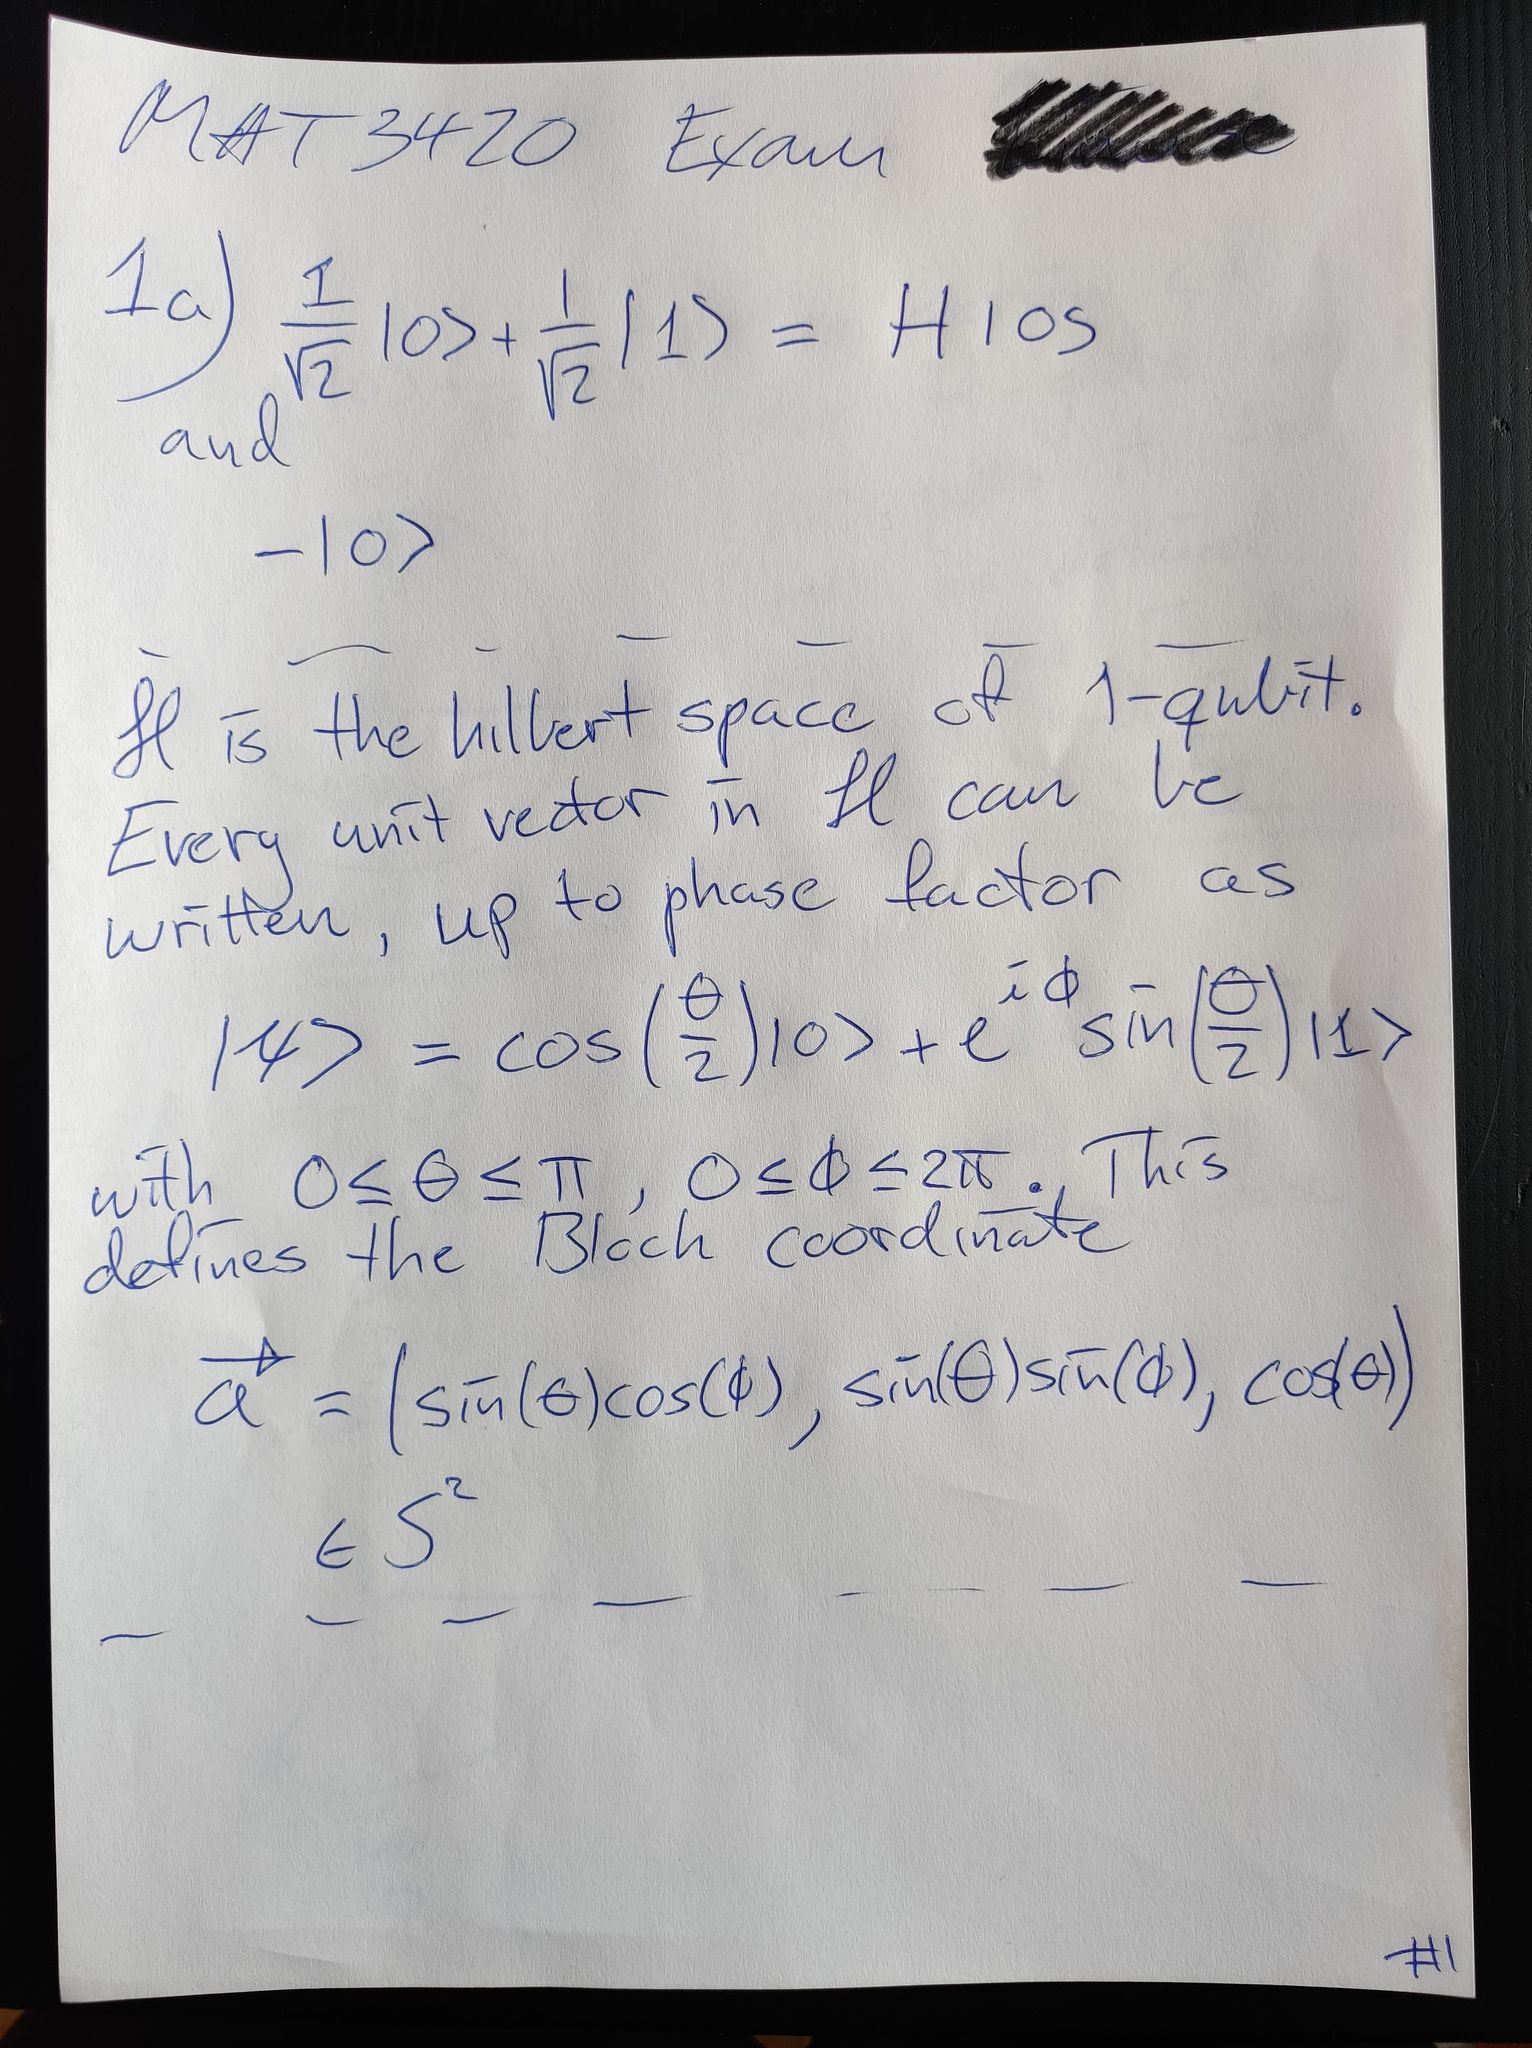 MAT3420 Exam
1a) 1/√2 |0> + 1/√2 |1> = H|0>
and
-|0>
ℋ is the hilbert space of 1-qubit.
Every unit vector in ℋ can be
written, up to phase factor as
|ψ> = cos(θ/2)|0> + e^{iϕ} sin(θ/2)|1>
with 0≤θ≤π, 0≤ϕ≤2π. This
defines the Bloch coordinate
a⃗ = (sin(θ)cos(ϕ), sin(θ)sin(ϕ), cos(θ))
∈ S²
#1